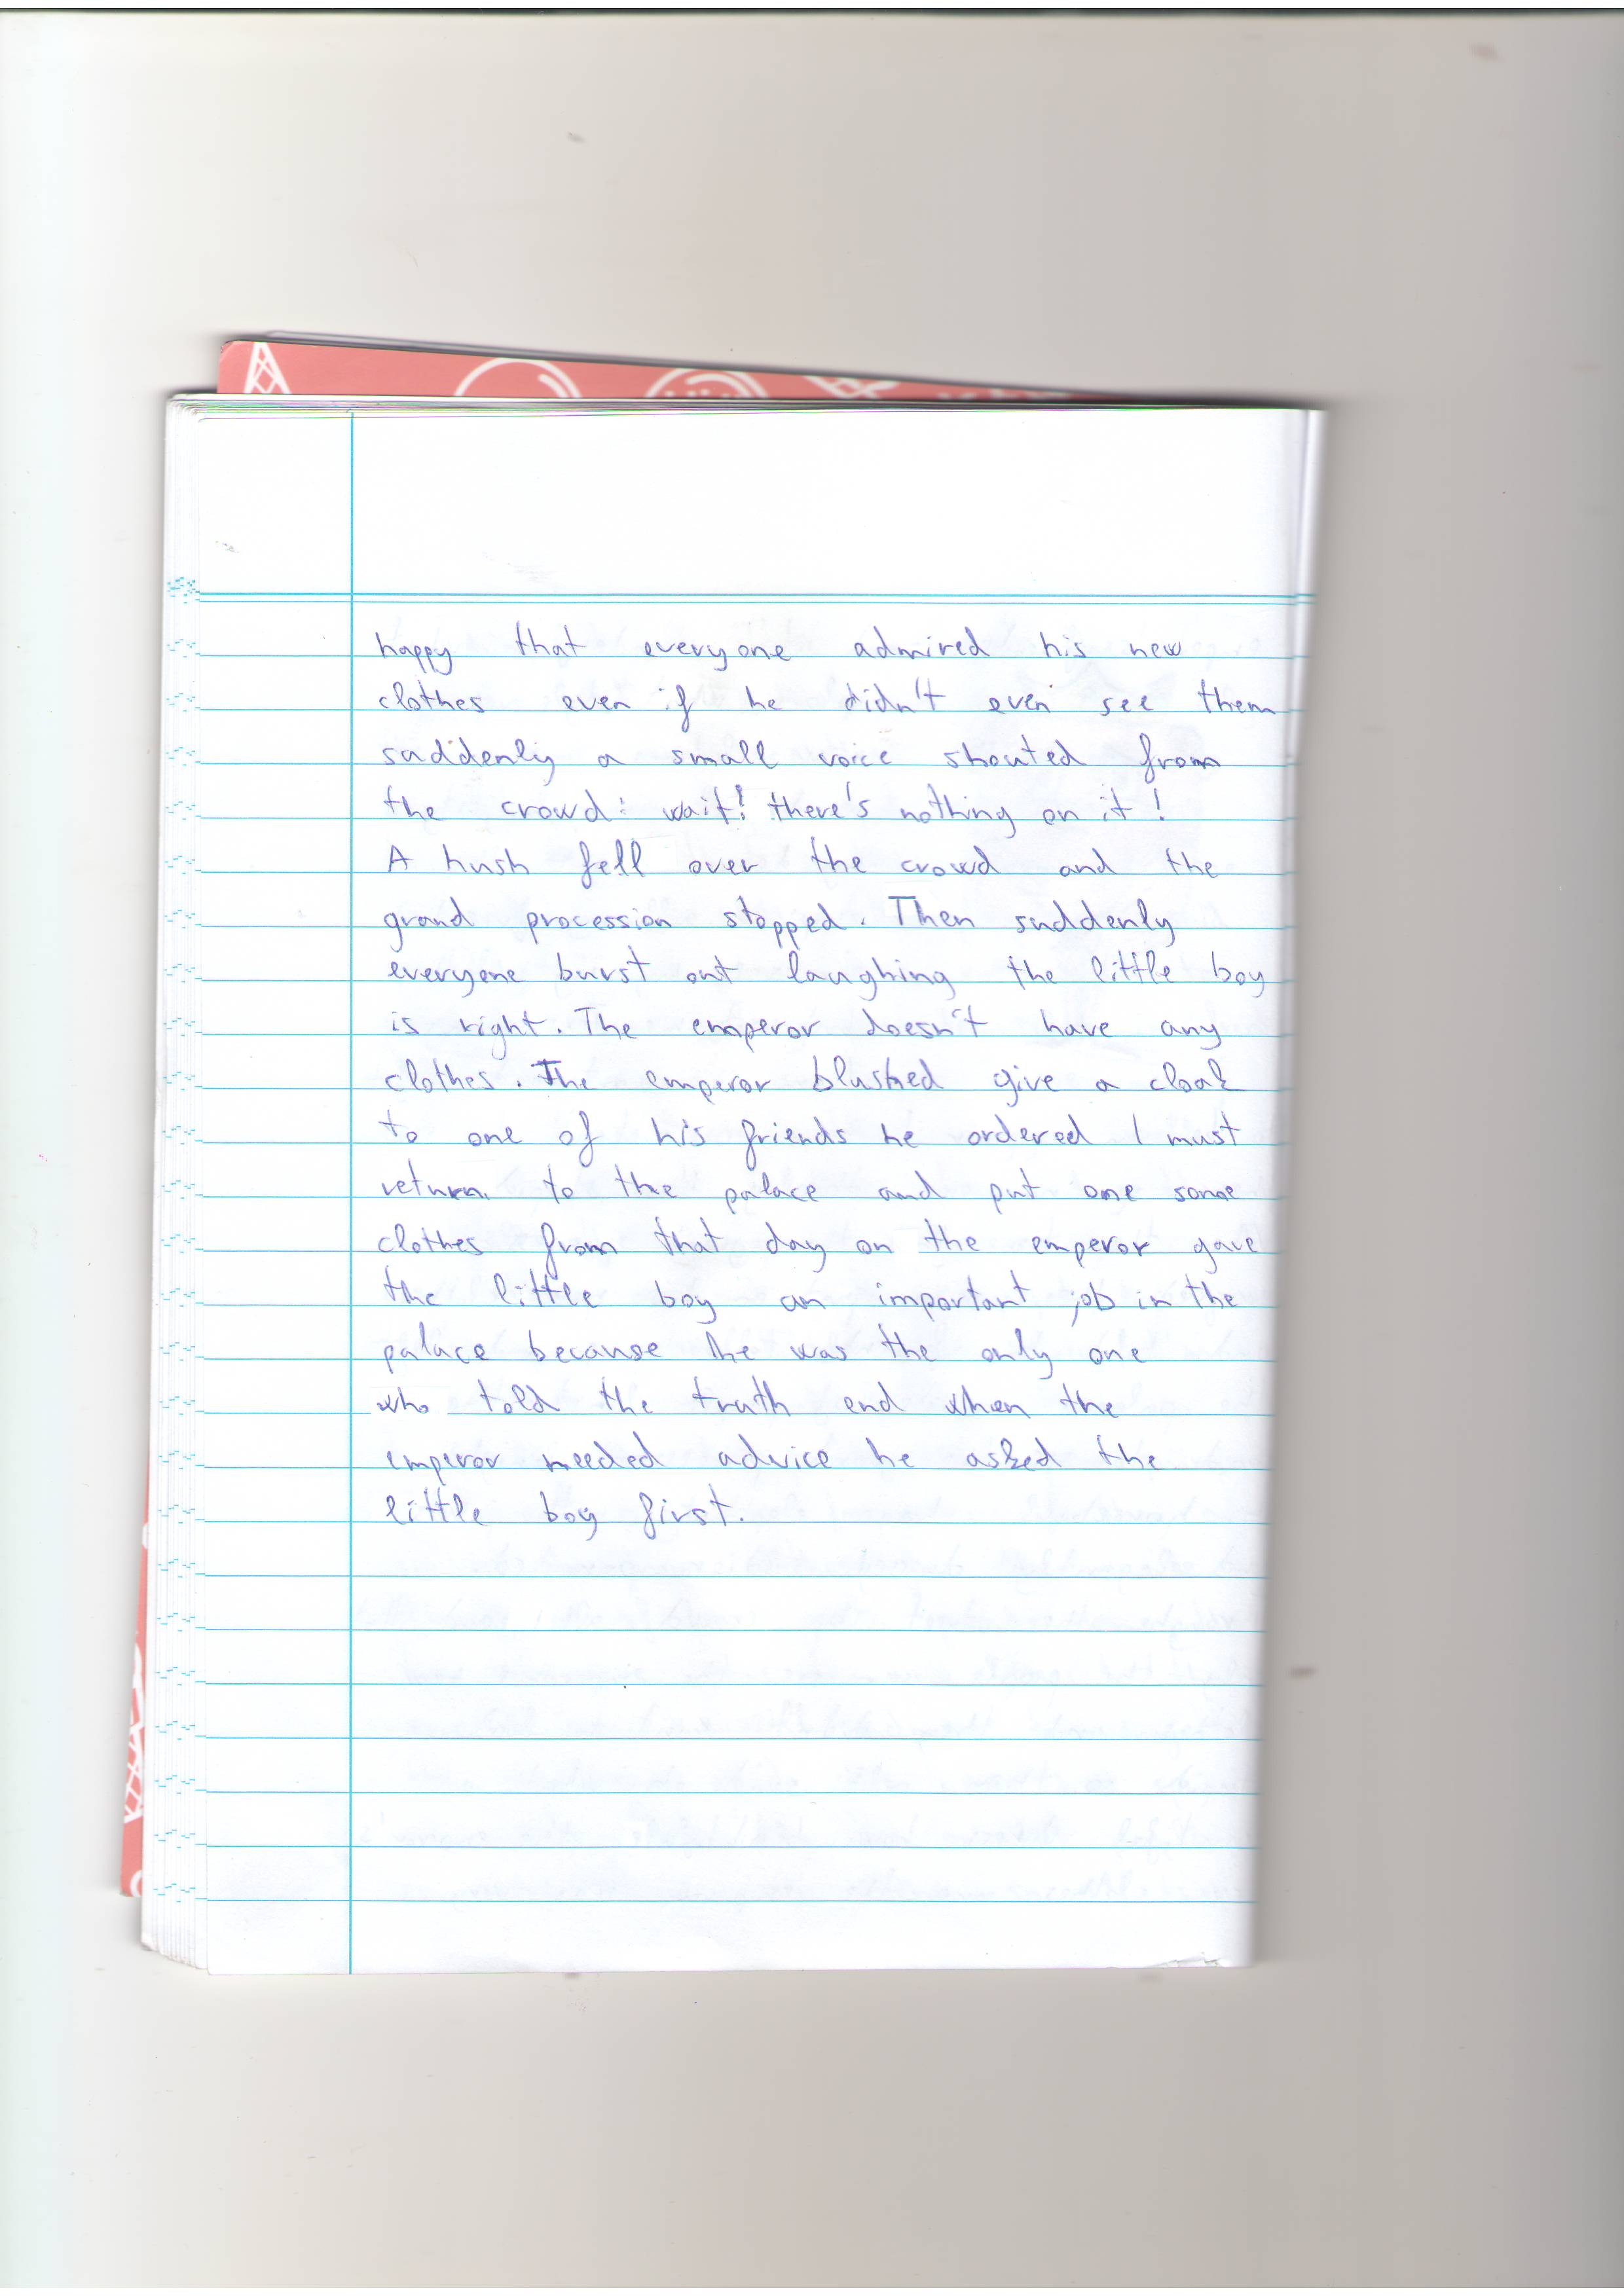 happy that everyone admired his new
clothes even if he didn't even see them
suddenly a small voice shouted from
the crowd: wait! there's nothing on it!
A hush fell over the crowd and the
grand procession stopped. Then suddenly
everyone burst out laughing the little boy
is right. The emperor doesn't have any
clothes. The emperor blushed give a cloak
to one of his friends he ordered I must
return to the palace and put one some
clothes from that day on the emperor gave
the little boy an important job in the
palace because he was the only one
who told the truth end when the
emperor needed advice he asked the
little boy first.